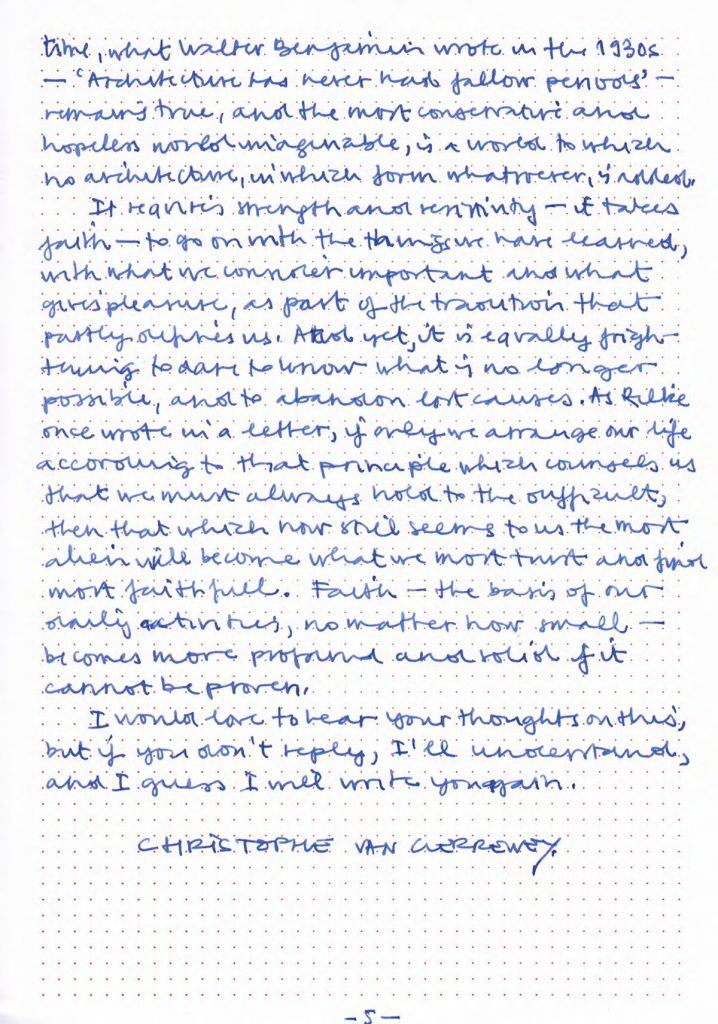 time, what Walter Benjamin wrote in the 1930s
– 'Architecture has never had fallow periods' –
remains true, and the most conservative and
hopeless world imaginable, is a world to which
no architecture, in which form whatsoever, is added.
It requires strength and sensitivity – it takes
faith – to go on with the things we have learned,
with what we consider important and what
gives pleasure, as part of the tradition that
partly defines us. And yet, it is equally frigh-
tening to dare to know what is no longer
possible, and to abandon lost causes. As Rilke
once wrote in a letter, if only we arrange our life
according to that principle which counsels us
that we must always hold to the difficult,
then that which now still seems to us the most
alien will become what we most trust and find
most faithfull. Faith – the basis of our
daily activities, no matter how small –
becomes more profound and solid if it
cannot be proven.
I would love to hear your thoughts on this,
but if you don't reply, I'll understand,
and I guess I will write you again.
CHRISTOPHE VAN GERREWEY.
– 5 –